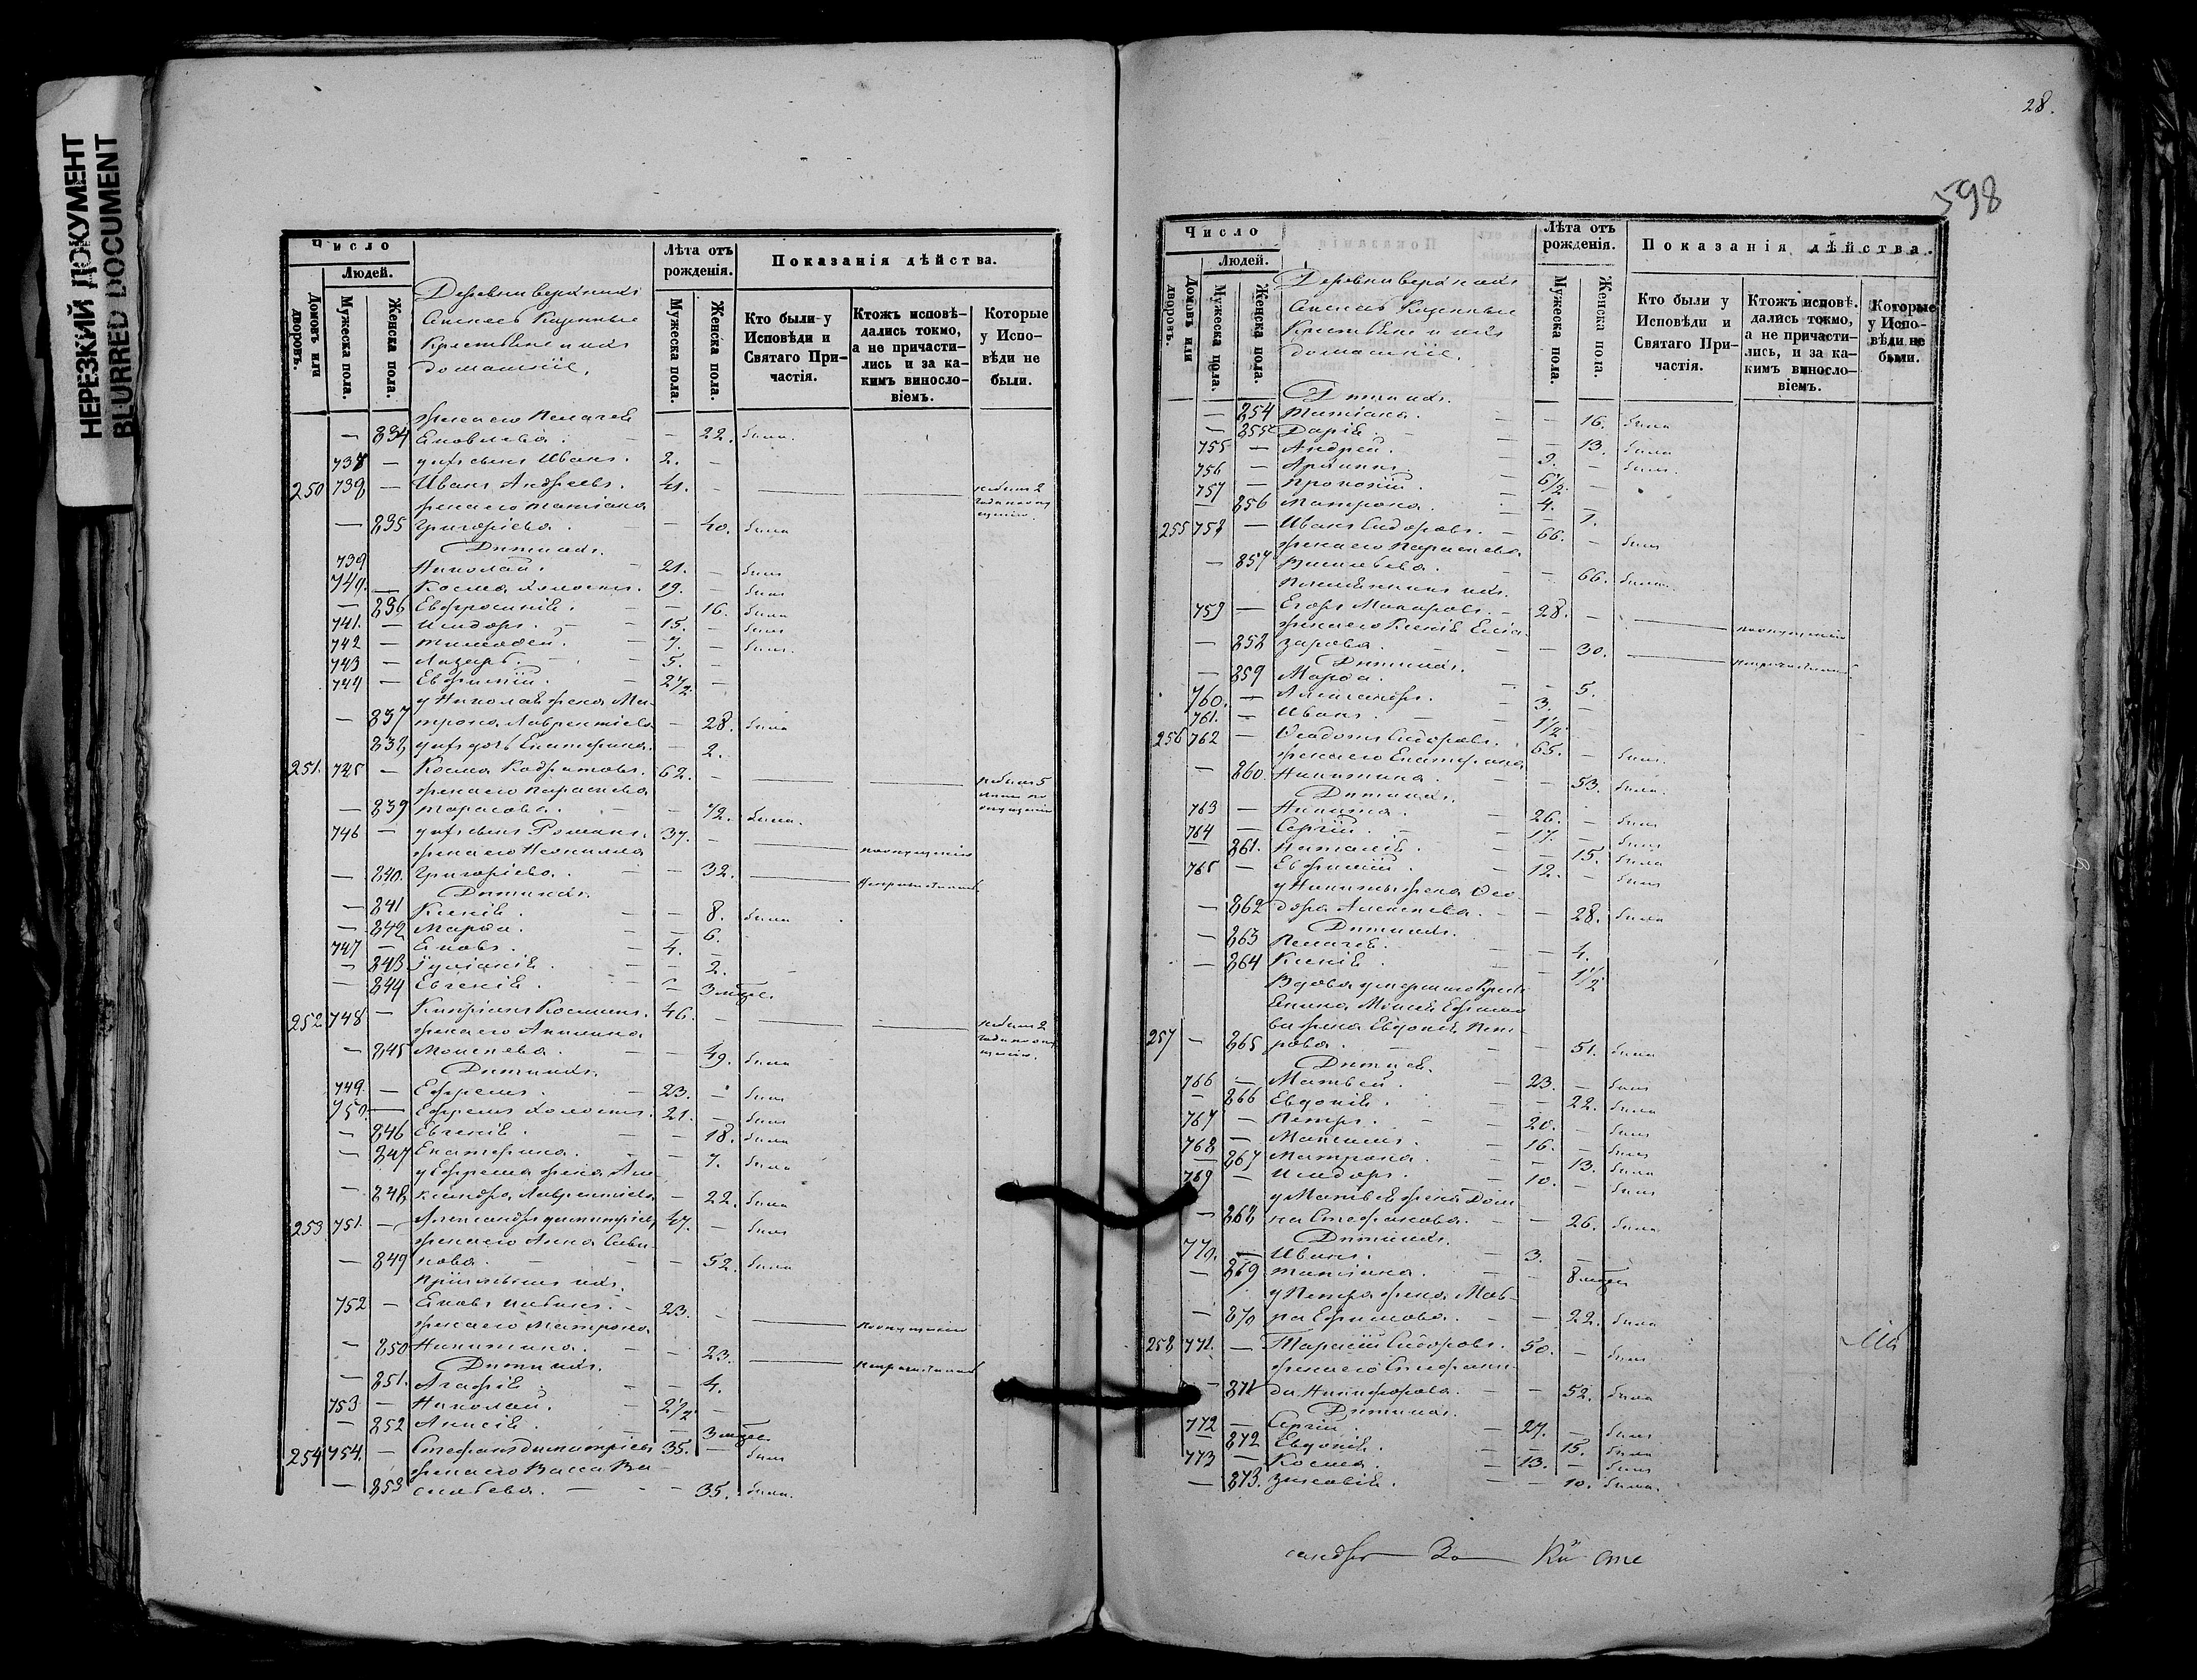 НЕРЕЗКИЙ ДОКУМЕНТ
BLURRED DOCUMENT
Число
Людей.
Домовъ или дворовъ.
Мужеска пола.
Женска пола.
Деревни верхнихъ
Казенные
Крестьяне и ихъ
домашніе,
Лѣта отъ рожденія.
Мужеска пола.
Женска пола.
Показанія дѣйства.
Кто были у Исповѣди и Святаго При-частія.
Ктожъ исповѣ-дались токмо, а не причасти-лись и за ка-кимъ винносло-віемъ.
Которые у Испо-вѣди не были.
жена его Пелагея
— 834 Яковлева. — 22. была.
737 — у нихъ сынъ Иванъ. 2. —
250 738 — Иванъ Андреевъ. 41. —
жена его Татіана
— 835 Григорьева. — 40. была
Дети ихъ.
739 Николай. 21. — былъ
740. — Косма холостъ. 19. — былъ
— 836 Евфросинія. — 16. была
741. — Исидоръ. 15. — былъ
742 — Тимофей. 7. — былъ.
743 — Лазарь. 5. —
744 — Евфимій. 2 1/2 —
у Николая жена Ма-
— 837 трона Лаврентіева — 28. была
838 у нихъ дочь Екатерина. — 2.
251. 745 — Косма Кодратовъ. 62. —
жена его Параскева
— 839 Тарасова. — 72. была.
746 — у нихъ сынъ Романъ. 37. — по опущенію
жена его Неонилла
— 840. Григорьева. — 32.
Дети ихъ.
— 841 Ксенія. — 8. была
— 842 Марѳа. — 6.
747 — Яковъ. 4. —
— 843 Іуліанія. — 2.
— 844 Евгенія. — 3 мѣся.
252 748 — Кипріанъ Косминъ. 46. —
жена его Акилина
— 845 Моисеева. — 49. была
Дети ихъ.
749. — Ефремъ. 23. — былъ
750. — Ефремъ холостъ. 21. — былъ
— 846 Евгенія. — 18. была
— 847 Екатерина. — 7. была
у Ефрема жена Але-
— 848 ксандра Лаврентіева — 22. была
253 751. — Александръ Димитріевъ 47. — былъ
жена его Анна Сави-
— 849 нова. — 52. была
Пріемышъ ихъ
752 — Яковъ 23. — по опущенію
жена его Матрона
— 850 Никитина. — 23.
Дети ихъ.
— 851. Агафія. — 4.
753 — Николай. 2 1/2 —
— 852 Анисія. — 3 мѣся.
254 754. — Стефанъ Димитріевъ 35. — былъ
жена его Васса Ва-
— 853 сильева. — 35. была.
28.
598
Число
Людей.
Домовъ или дворовъ.
Мужеска пола.
Женска пола.
Деревни верхнихъ
Казенные
Крестьяне и ихъ
домашніе.
Лѣта отъ рожденія.
Мужеска пола.
Женска пола.
Показанія дѣйства.
Кто были у Исповѣди и Святаго При-частія.
Ктожъ исповѣ-дались токмо, а не причасти-лись, и за ка-кимъ винносло-віемъ.
Которые у Испо-вѣди не были.
Дети ихъ.
— 854 Татіана. — 16. была
— 855 Дарія. — 13. была
755 — Андрей. 9. — былъ.
756 — Архипъ. 6 1/2. —
757 — Прокопій. 4. —
— 856 Матрона. — 1.
255 758 — Иванъ Сидоровъ. 66. — былъ
жена его Параскева
— 857 Васильева. — 66. была.
759 — Егоръ Макаровъ. 28. — по опущенію
жена его Ксенія Елеа-
— 858 зарова. — 30.
Дети ихъ.
— 859 Марѳа. — 5.
760. — Александръ. 3. —
761. — Иванъ. 1 1/2
256 762 — Ѳеодотъ Сидоровъ. 65. — былъ.
жена его Екатерина
— 860. Никитина. — 53. была.
Дети ихъ.
763 — Никита. 26. — былъ
764 — Сергій. 17. — былъ
861. Наталія. — 15. была
765 — Евфимій. 12. — былъ
у Никиты жена Ѳео-
— 862 дора Алексеева. — 28. была
Дети ихъ.
— 863 Пелагея. — 4.
— 864 Ксенія. — 1 1/2
Вдова умершаго Кресть
янина Моисея Ефимо
ва жена Евдокія Пет-
257 — 865 рова. — 51. была
Дети ея.
766 — Матвей. 23. — былъ
— 866 Евдокія. — 22. была
767 — Петръ. 20. — былъ
768 — Максимъ. 16. — былъ
— 867 Матрона. — 13. была
769 — Исидоръ. 10. — былъ
у Матвея жена Дом-
— 868 на Стефанова. — 26. была
Дети ихъ.
770. — Иванъ. 3. —
— 869 Татіана. — 8 мѣся
у Петра жена Мав-
— 870 ра Ефимова. — 22. была
258 771. — Тарасій Сидоровъ. 50. — былъ
жена его Стефани-
— 871 да Никифорова. — 52. была
Дети ихъ.
772 — Сергій. 27. — былъ
— 872 Евдокія. — 15. была
773 — Косма. 13. — былъ
— 873. Зиновія. — 10. была.